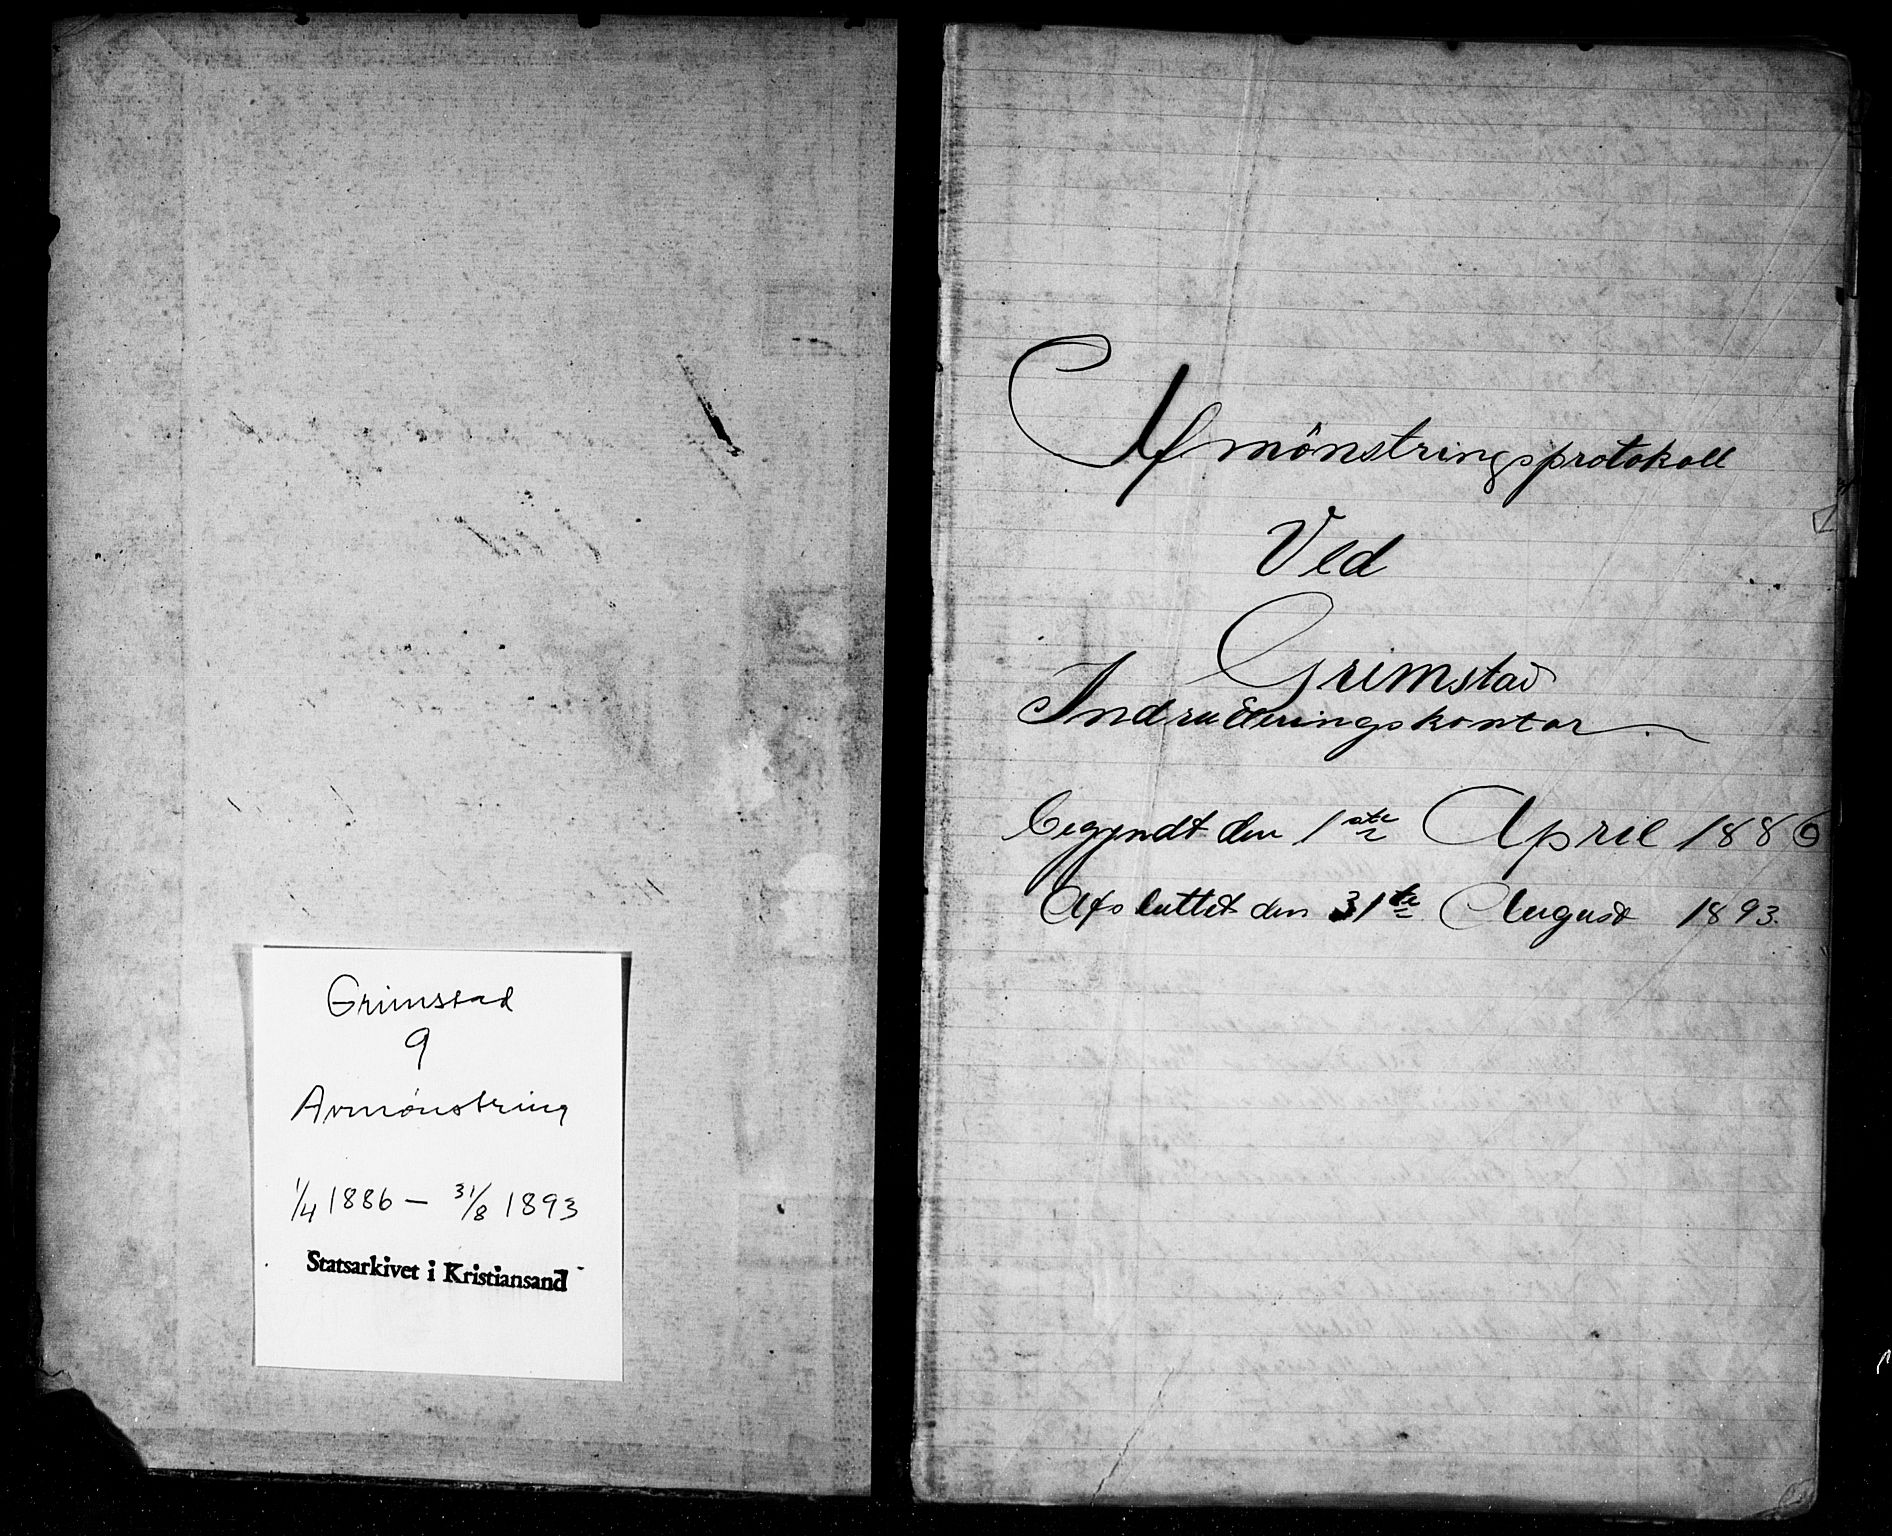 Grimstad
9
Avmønstring
1/4 1886 – 31/8 1893
Statsarkivet i Kristiansand
Afmönstringsprotokoll
Ved
Grimstad
Indrulleringskontor.
begyndt den 1ste April 1886
Afsluttet den 31te August 1893.